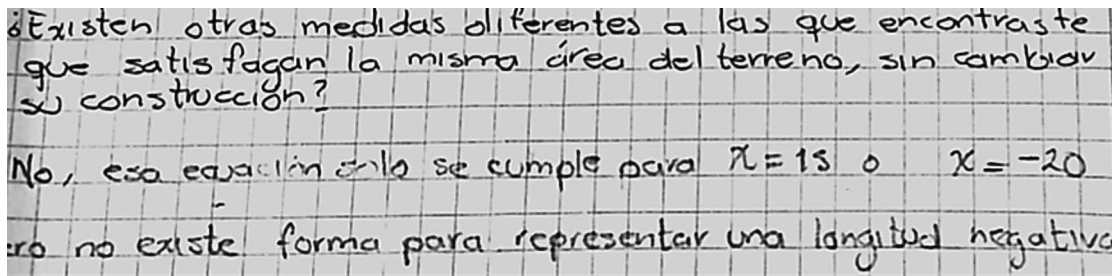 ¿Existen otras medidas diferentes a las que encontraste
que satisfagan la misma área del terreno, sin cambiar
su construcción?
No, esa ecuación solo se cumple para x = 15 o x = -20
ero no existe forma para representar una longitud negativa